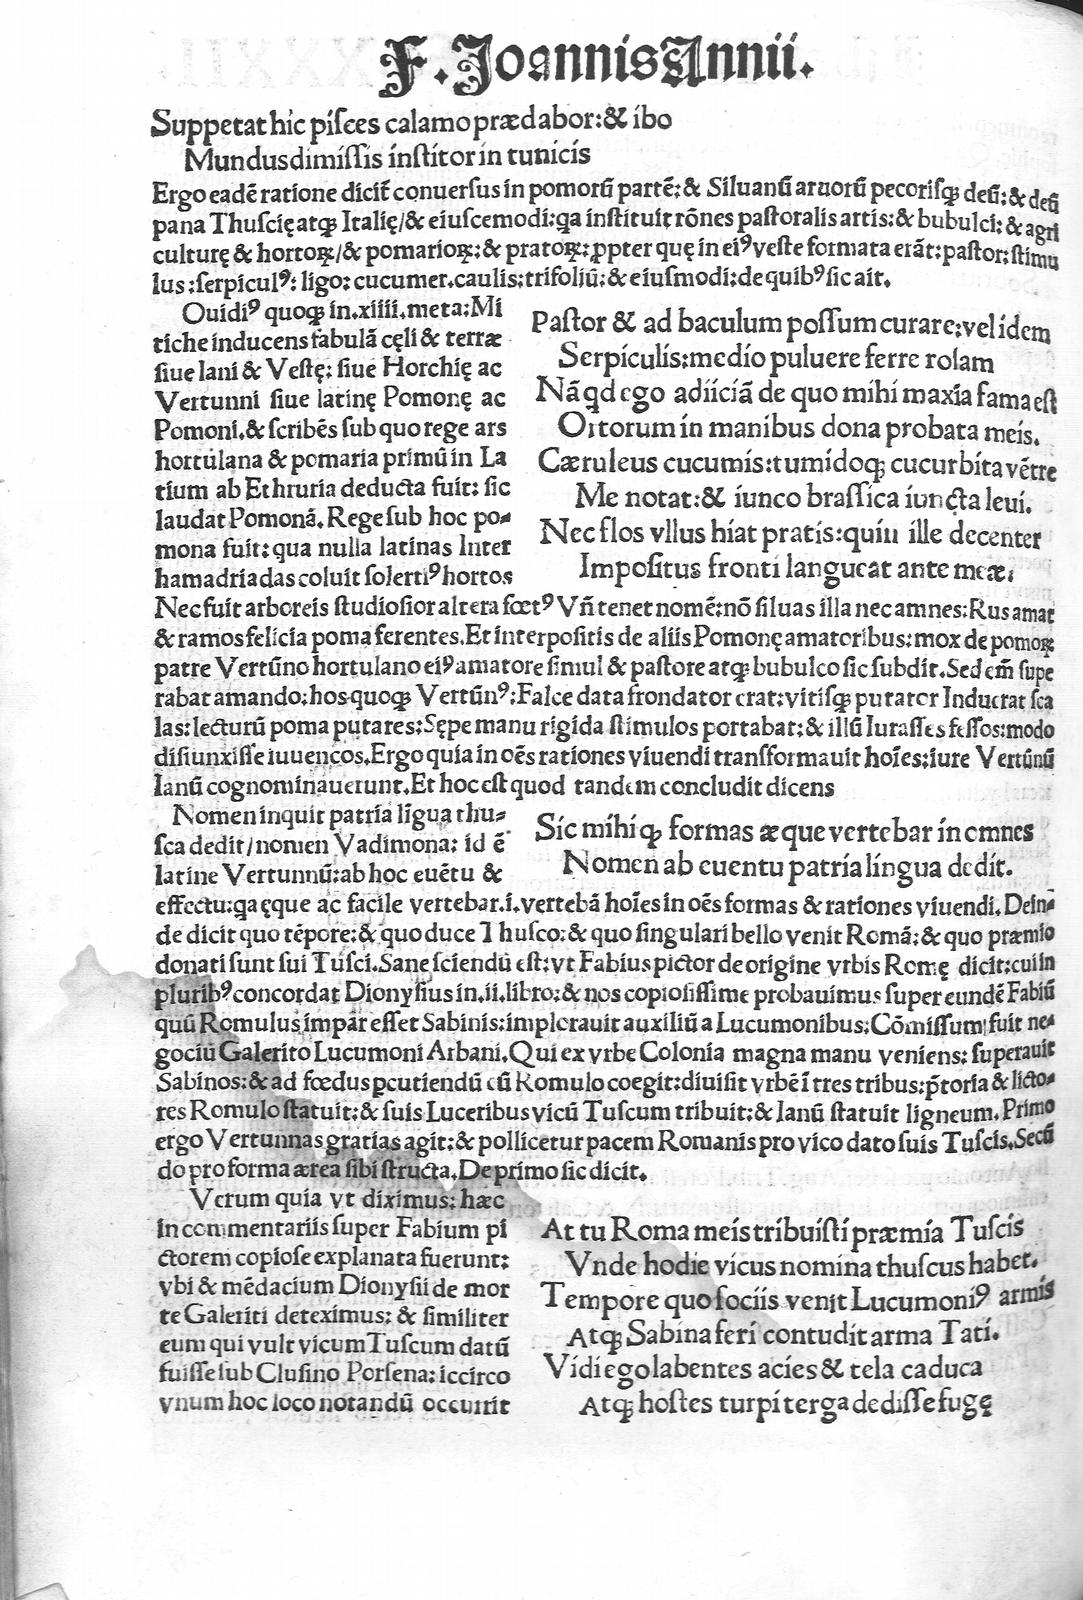 F. Joannis Annii.
Suppetat hic pisces calamo prædabor: & ibo
Mundus dimissis institor in tunicis
Ergo eadẽ ratione dicit̃ conuersus in pomorũ partẽ: & Siluanũ aruorũ pecorisq; deũ: & deũ
pana Thuscię atq; Italię/& eiuscemodi: qa instituit rõnes pastoralis artis: & bubulci: & agri
culturę & hortoꝝ/& pomarioꝝ: & pratoꝝ: ꝓpter quę in eiꝰ veste formata erãt: pastor: stimu
lus: serpiculꝰ: ligo: cucumer. caulis: trifoliũ: & eiusmodi: de quibꝰ sic ait.
Ouidiꝰ quoq; in .xiiii. meta: Mi
tiche inducens fabulã cęli & terræ
siue Iani & Vestę: siue Horchię ac
Vertunni siue latinę Pomonę ac
Pomoni. & scribẽs sub quo rege ars
hortulana & pomaria primũ in La
tium ab Ethruria deducta fuit: sic
laudat Pomonã. Rege sub hoc po-
mona fuit: qua nulla latinas Inter
hamadriadas coluit solertiꝰ hortos
Pastor & ad baculum possum curare: vel idem
Serpiculis: medio puluere ferre rosam
Nã qd ego adiiciã de quo mihi maxĩa fama est
Ortorum in manibus dona probata meis.
Cæruleus cucumis: tumidoq; cucurbita vẽtre
Me notat: & iunco brassica iuncta leui.
Nec flos vllus hiat pratis: quin ille decenter
Impositus fronti langueat ante meæ:
Nec fuit arboreis studiosior altera fœtꝰ Vñ tenet nomẽ: nõ siluas illa nec amnes: Rus amat
& ramos felicia poma ferentes. Et interpositis de aliis Pomonę amatoribus: mox de pomoꝝ
patre Vertũno hortulano eiꝰ amatore simul & pastore atq; bubulco sic subdit. Sed em̃ supe
rabat amando: hos quoq; Vertũnꝰ: Falce data frondator erat: vitisq; putator Inducrat sca
las: lecturũ poma putares: Sępe manu rigida stimulos portabat: & illũ Iurasses fessos: modo
disiunxisse iuuencos. Ergo quia in oẽs rationes viuendi transformauit hoĩes: iure Vertũnũ
Ianũ cognominauerunt. Et hoc est quod tandem concludit dicens
Nomen inquit patria lĩgua thu-
sca dedit/nomen Vadimona: id ẽ
latine Vertunnũ: ab hoc euẽtu &
Sic mihiq; formas æque vertebar in omnes
Nomen ab euentu patria lingua dedit.
effectu: qa ęque ac facile vertebar. i. vertebã hoĩes in oẽs formas & rationes viuendi. Dein-
de dicit quo tẽpore: & quo duce Thusco: & quo singulari bello venit Romã: & quo præmio
donati sunt sui Tusci. Sane sciendũ est: vt Fabius pictor de origine vrbis Romę dicit: cui in
pluribꝰ concordat Dionysius in .ii. libro: & nos copiosissime probauimus super eundẽ Fabiũ
quũ Romulus impar esset Sabinis: implorauit auxiliũ a Lucumonibus: Cõmissum fuit ne-
gociũ Galerito Lucumoni Arbani. Qui ex vrbe Colonia magna manu veniens: superauit
Sabinos: & ad fœdus pcutiendũ cũ Romulo coegit: diuisit vrbẽ ĩ tres tribus: p̃toria & licto-
res Romulo statuit: & suis Luceribus vicũ Tuscum tribuit: & Ianũ statuit ligneum. Primo
ergo Vertunnas gratias agit: & pollicetur pacem Romanis pro vico dato suis Tuscis. Secũ
do pro forma ærea sibi structa. De primo sic dicit.
Verum quia vt diximus: hæc
in commentariis super Fabium pi
ctorem copiose explanata fuerunt:
vbi & mẽdacium Dionysii de mor
te Galeriti deteximus: & similiter
eum qui vult vicum Tuscum datũ
fuisse sub Clusino Porsena: iccirco
vnum hoc loco notandũ occurrit
At tu Roma meis tribuisti præmia Tuscis
Vnde hodie vicus nomina thuscus habet.
Tempore quo sociis venit Lucumoniꝰ armis
Atq; Sabina feri contudit arma Tati.
Vidi ego labentes acies & tela caduca
Atq; hostes turpi terga dedisse fugę